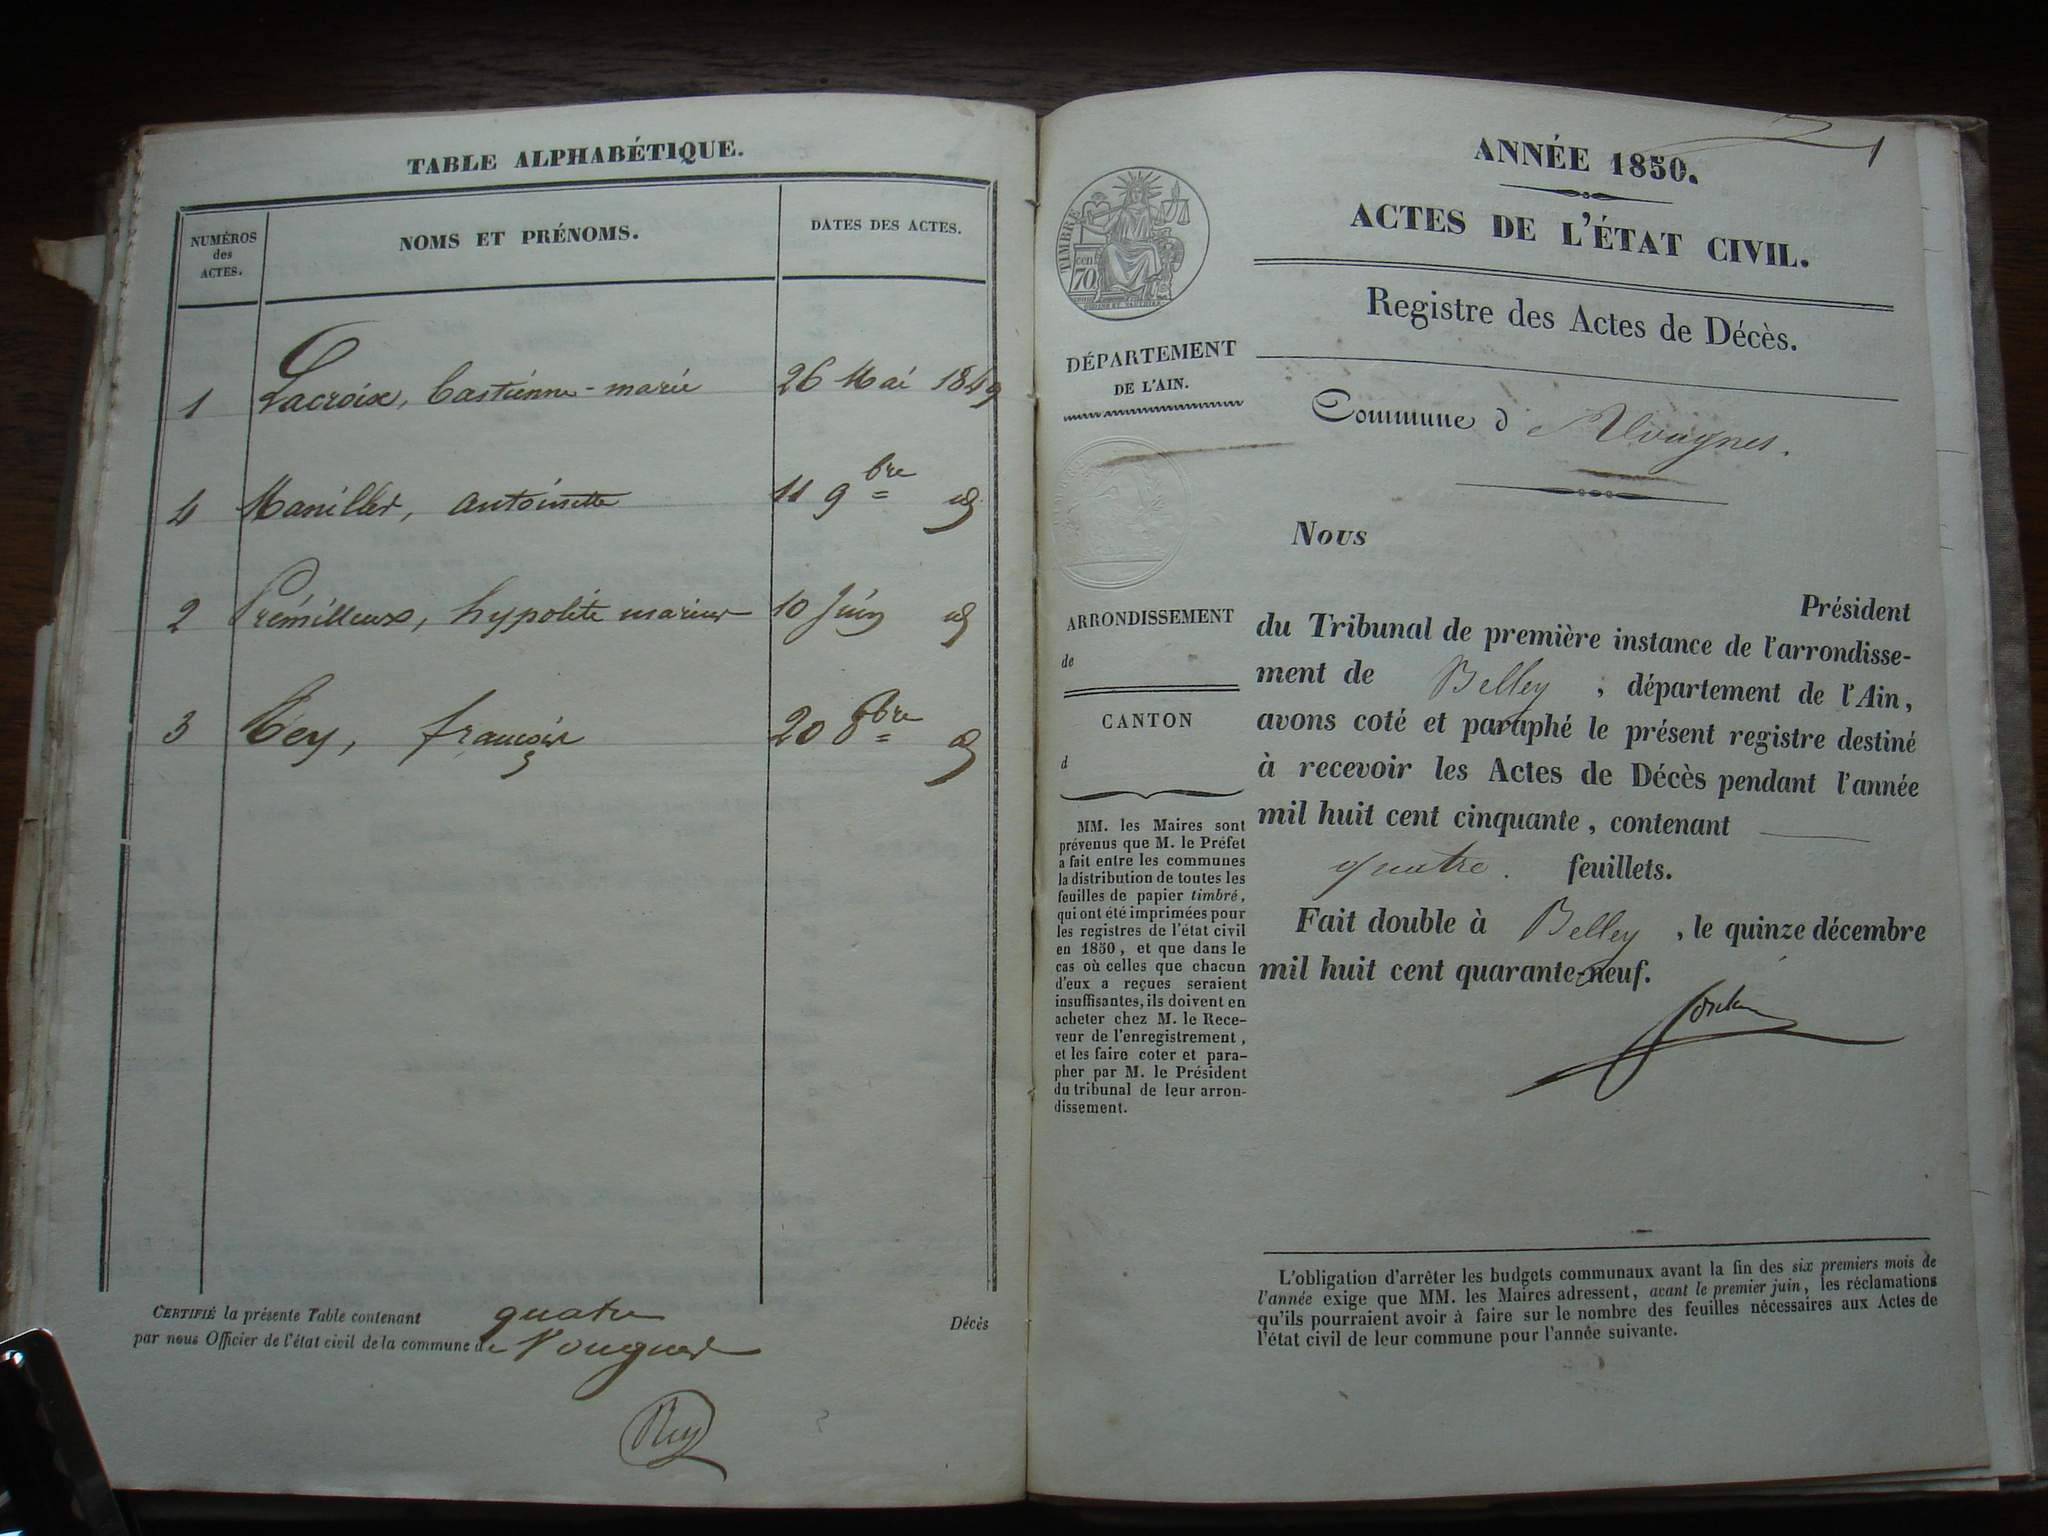 TABLE ALPHABÉTIQUE.
NUMÉROS
des
ACTES.
NOMS ET PRÉNOMS.
DATES DES ACTES.
1 Lacroix, bastienne-marie 26 Mai 1849
4 antoinette 11 9bre id
2 Prémilleux, hypolite marius 10 Juin id
3 Rey, françois 20 8bre id
CERTIFIÉ la présente Table contenant quatre Décès
par nous Officier de l'état civil de la commune de
Rey
1
ANNÉE 1850.
ACTES DE L'ÉTAT CIVIL.
Registre des Actes de Décès.
TIMBRE
cent
70
DÉPARTEMENT
DE L'AIN.
Commune d
Nous
Président
ARRONDISSEMENT
de
CANTON
d
du Tribunal de première instance de l'arrondisse-
ment de Belley, département de l'Ain,
avons coté et paraphé le présent registre destiné
à recevoir les Actes de Décès pendant l'année
mil huit cent cinquante, contenant
quatre. feuillets.
Fait double à Belley, le quinze décembre
mil huit cent quarante-neuf.
MM. les Maires sont
prévenus que M. le Préfet
a fait entre les communes
la distribution de toutes les
feuilles de papier timbré,
qui ont été imprimées pour
les registres de l'état civil
en 1850, et que dans le
cas où celles que chacun
d'eux a reçues seraient
insuffisantes, ils doivent en
acheter chez M. le Rece-
veur de l'enregistrement,
et les faire coter et para-
pher par M. le Président
du tribunal de leur arron-
dissement.
L'obligation d'arrêter les budgets communaux avant la fin des six premiers mois de
l'année exige que MM. les Maires adressent, avant le premier juin, les réclamations
qu'ils pourraient avoir à faire sur le nombre des feuilles nécessaires aux Actes de
l'état civil de leur commune pour l'année suivante.